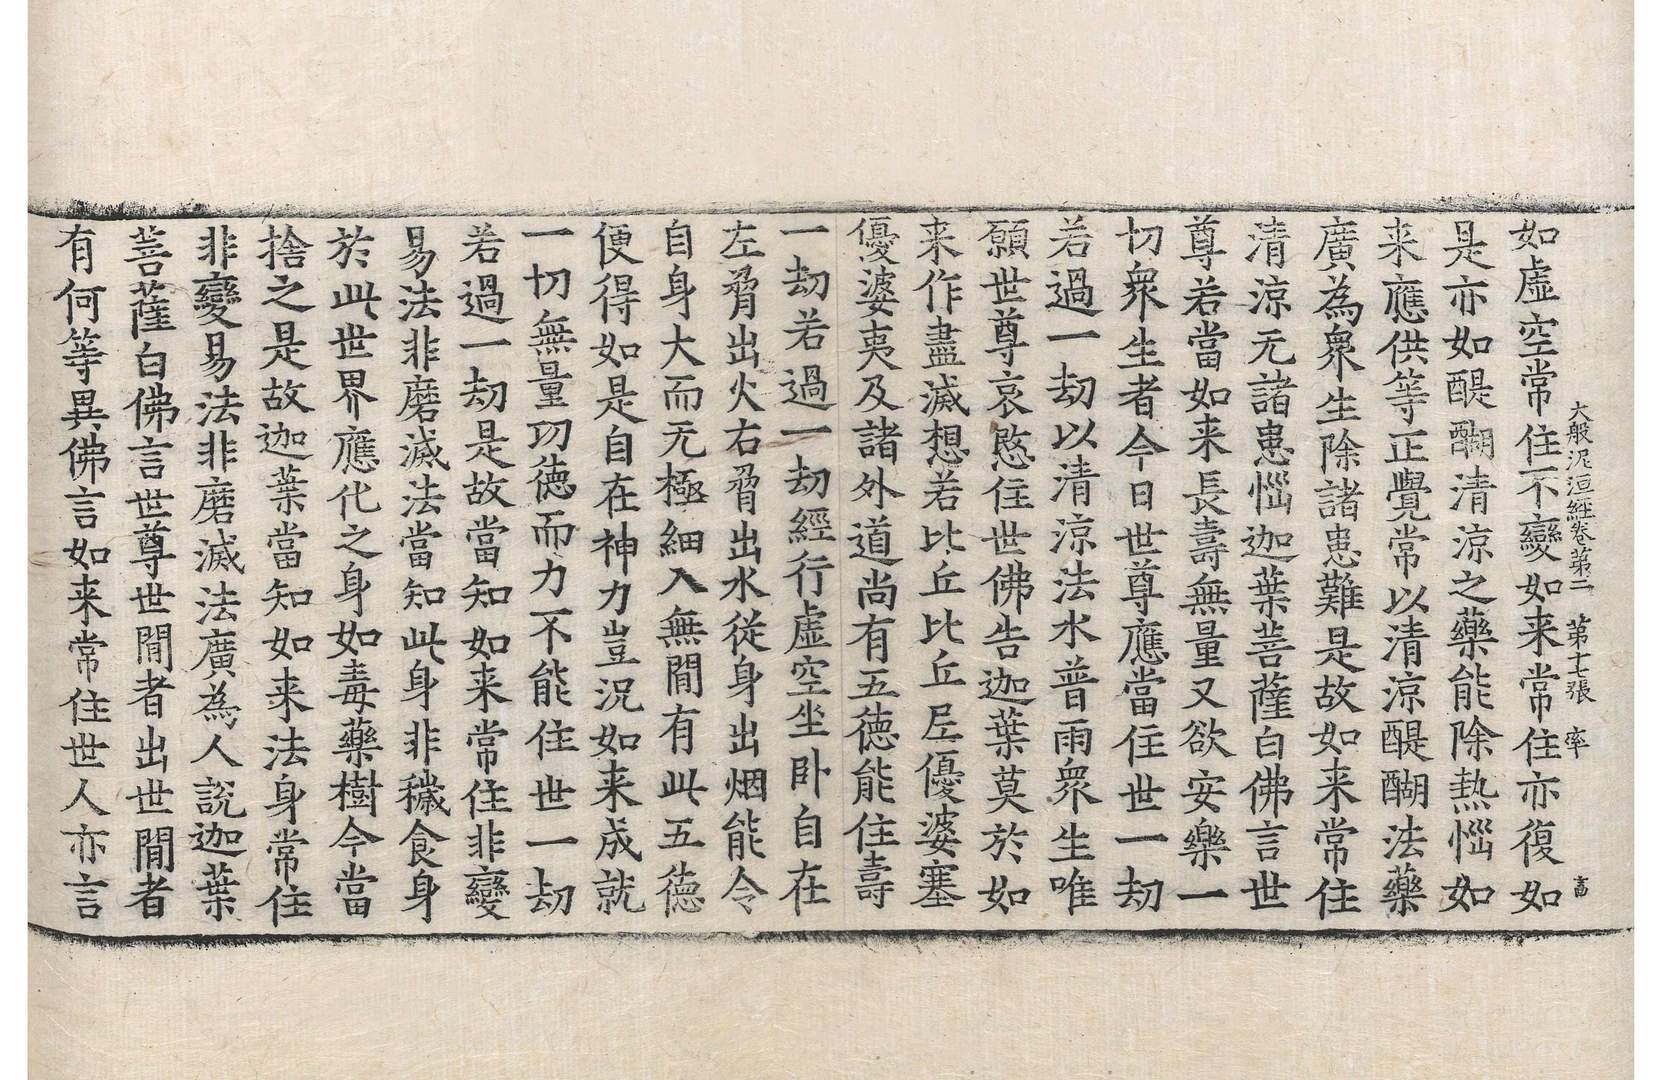 大般泥洹經卷第二　第十七張　率
如虛空常住不變如来常住亦復如
是亦如醍醐清涼之藥能除熱惱如
来應供等正覺常以清涼醍醐法藥
廣為衆生除諸患難是故如来常住
清涼无諸患惱迦葉菩薩白佛言世
尊若當如来長壽無量又欲安樂一
切衆生者今日世尊應當住世一劫
若過一劫以清涼法水普雨衆生唯
願世尊哀愍住世佛告迦葉莫於如
来作盡滅想若比丘比丘尼優婆塞
優婆夷及諸外道尚有五德能住壽
一劫若過一劫經行虛空坐卧自在
左脅出火右脅出水從身出烟能令
自身大而无極細入無間有此五德
便得如是自在神力豈況如来成就
一切無量功德而力不能住世一劫
若過一劫是故當知如来常住非變
易法非磨滅法當知此身非穢食身
於此世界應化之身如毒藥樹今當
捨之是故迦葉當知如来法身常住
非變易法非磨滅法廣為人說迦葉
菩薩白佛言世尊世間者出世間者
有何等異佛言如来常住世人亦言